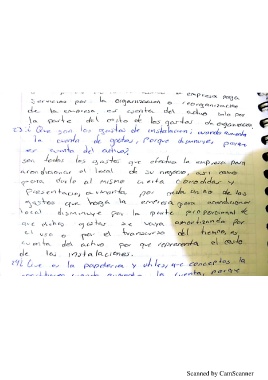 empresa paga
Servicios por la organizacion o reorganización
de la empresa, es cuenta del activo solo por
la parte del costo de los gastos de organización
23. ¿ Que son los gastos de instalacion; cuando aumenta
la cuenta de gastos, Porque disminuye, porque
es cuenta del activo?
son todos los gastos que efectua la empresa para
acondicionar el local de su negocio, asi como
para darle al mismo cierta comodidad y
Presentacion, aumenta por cada uno de los
gastos que haga la empresa para acondicionar
local disminuye por la parte proporcional de
que dichos gastos se vaya amortizando por
el uso o por el transcurso del tiempo, es
cuenta del activo por que representa el costo
de las instalaciones.
24. Que es la papeleria y utiles, que conceptos la
cuando aumenta la cuenta, porque
Scanned by CamScanner